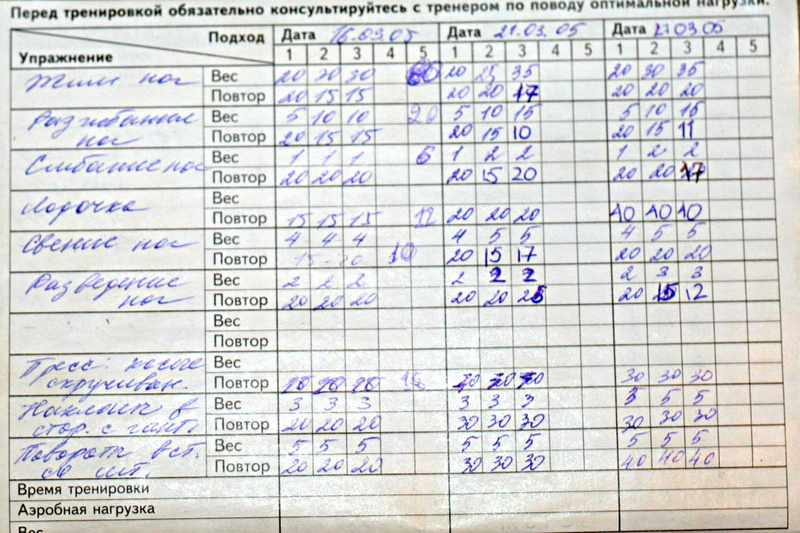 Перед тренировкой обязательно консультируйтесь с тренером по поводу оптимальной нагрузки.
Подход Дата 16.03.05 Дата 21.03.05 Дата 27.03.05
Упражнение 1 2 3 4 5 1 2 3 4 5 1 2 3 4 5
Жим ног Вес 20 30 30 60 20 25 35 20 30 35
Повтор 20 15 15 20 20 17 20 20 20
Разгибание Вес 5 10 10 20 5 10 15 5 10 15
ног Повтор 20 15 15 20 15 10 20 15 11
Сгибание ног Вес 1 1 1 6 1 2 2 1 2 2
Повтор 20 20 20 20 15 20 20 20 17
Лодочка Вес
Повтор 15 15 15 12 20 20 20 40 40 40
Сведение ног Вес 4 4 4 4 5 5 4 5 5
Повтор 15-20 10 20 15 17 20 20 20
Разведение Вес 2 2 2 2 2 2 2 3 3
ног Повтор 20 20 20 20 20 25 20 15 12
Вес
Повтор
Пресс косые Вес
скручиван. Повтор 30 30 30
Наклоны в Вес 3 3 3 3 3 3 5 5 5
стор. с гант. Повтор 20 20 20 30 30 30 30 30 30
Повороты Вес 5 5 5 5 5 5 5 5 5
Повтор 20 20 20 30 30 30 40 40 40
Время тренировки
Аэробная нагрузка
Вес